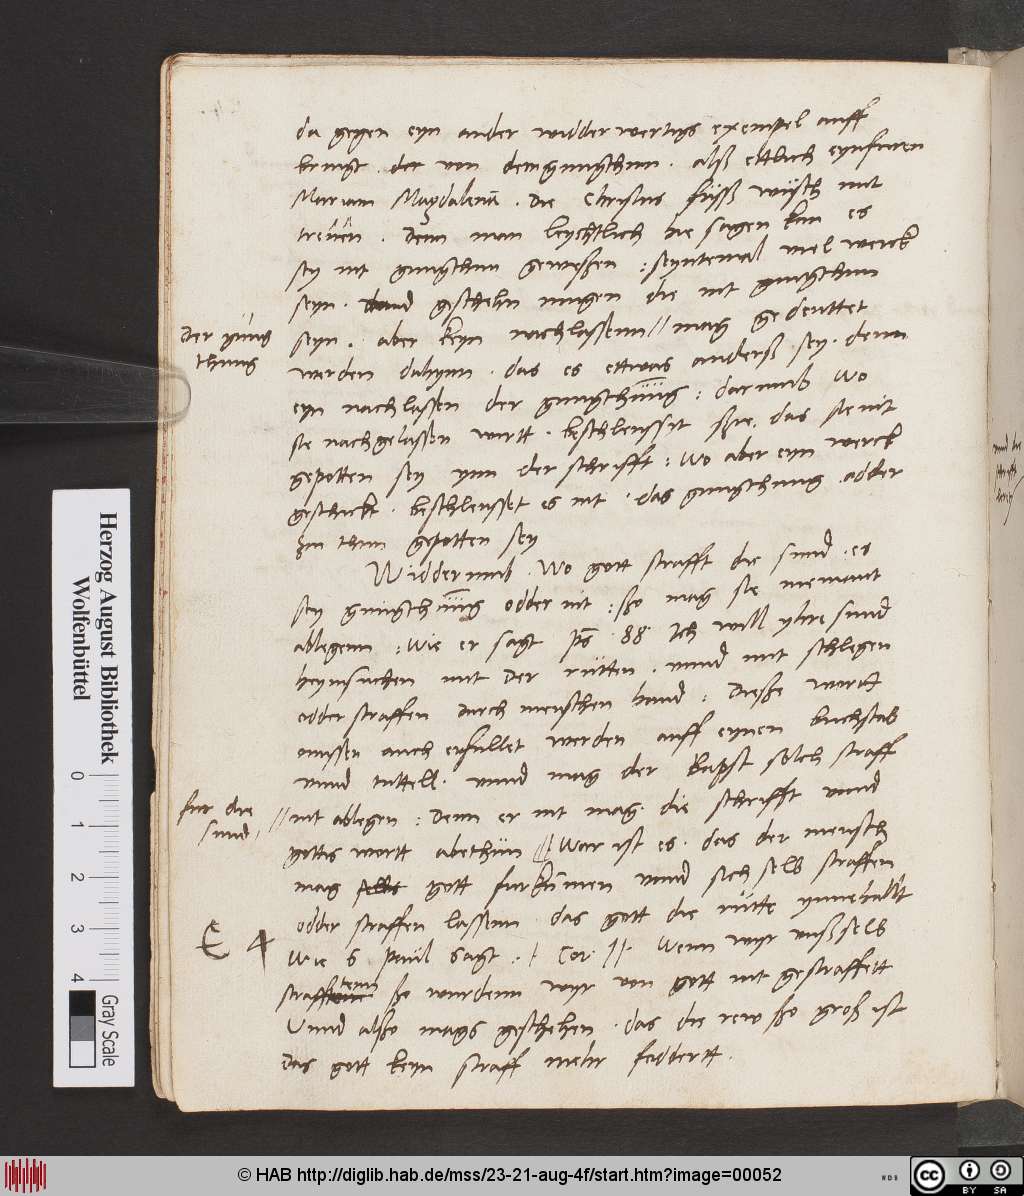 da gegen eyn ander widderwertigs exempel auff
bringt . von dem gnugthun . alß ettlich eynfuren
Mariam Magdalenā . die Christus fuss wusch mit
trenen . Denn man leychtlich hie sagen kan es
sey nit gnugthun geweßen : seyntemal viel werck
seyn . geschehn mugen die nit gnugthun
seyn . aber keyn nachlassenn // mag gedeuttet
der gnug
thuug
werden dahynn . das es ettwas anderß sey . denn
eyn nachlassen der gnugthuug : darumb wo
sie nachgelassen wirtt . beschleussit sichs . das sie nit
gepotten sey ynn der schrifft : Wo aber eyn werck
geschickt . beschleusset es nit . das gnugthuug odder
zu thun gepotten sey
Widderumb . Wo gott strafft die sund . es
sey gnugthuug odder nit : ßo mag sie niemant
ablegenn : Wie er sagt ps 88 Ich will yhre sund
heymsuchen mit der rutten . unnd mit schlegen
odder straffen durch menschen hand : Dieße wortt
mussen auch erfullet werden auff eynen buchstab
unnd tuttell . unnd mag der Bapst solch straff
fur die
sund //
// nit ablegen : Denn er nit mag die schrifft unnd
gottis wortt abethun // War ist es . das der mensch
mag gott furkumen unnd sich selb straffen
odder straffen lassenn das gott die rutte ynnehallt
E 4
Wie S Paul sagt . 1 Cor : 11 . Wenn wyr unß selb
strafftenn ßo wurdenn wyr von gott nit gestraffett
Unnd alßo mags geschehen . das die rew ßo groß ist
das gott keyn straff mehr foddertt .
Herzog August Bibliothek
Wolfenbüttel
0 1 2 3 4
Gray Scale
© HAB http://diglib.hab.de/mss/23-21-aug-4f/start.htm?image=00052
WDB
cc BY SA